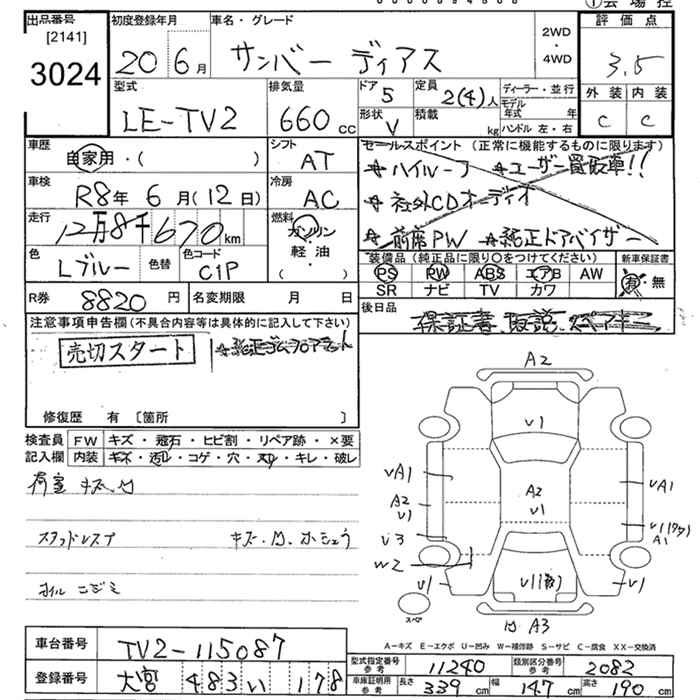 出品番号 [2141] 3024
初度登録年月 20年 6月
車名・グレード サンバー ディアス
2WD・4WD
評価点 3.5
外装 内装
C C
型式 LE-TV2
排気量 660cc
ドア 5
形状 V
定員 2(4)人
積載 kg
ディーラー・並行
モデル年式 年
ハンドル 左・右
車歴 自家用・( )
シフト AT
セールスポイント (正常に機能するものに限ります)
ハイルーフ ユーザー買取車!!
社外CDオーディオ
前席PW 純正ドアバイザー
車検 R8年 6月(12日)
冷房 AC
走行 12万8千670km
燃料 ガソリン・軽油・( )
色 Lブルー 色替
色コード C1P
装備品 (純正品に限り○をつけてください)
PS PW ABS エアB AW
SR ナビ TV カワ
新車保証書 有・無
R券 8820円
名変期限 月 日
後日品 保証書、取説、スペアキー
注意事項申告欄(不具合内容等は具体的に記入して下さい)
売切スタート 純正ゴムフロアマット
修復歴 有 [箇所 ]
検査員記入欄
FW キズ・飛石・ヒビ割・リペア跡・×要
内装 キズ・汚れ・コゲ・穴・スリ・キレ・破レ
荷室 キズ、凹
スタッドレスタ キズ、凹、ホシュウ
オイルニジミ
A2
V1
VA1
A2
V1
A2
V1
VA1
V3
V1
A1
W2
V1
V1
V1
スペア
凹 A3
A-キズ E-エクボ U-凹み W-補修跡 S-サビ C-腐食 XX-交換済
車台番号 TV2-115087
登録番号 大宮 483 い 178
型式指定番号 参考 11240
類別区分番号 参考 2082
車庫証明用 参考 長さ 339cm 幅 147cm 高さ 190cm